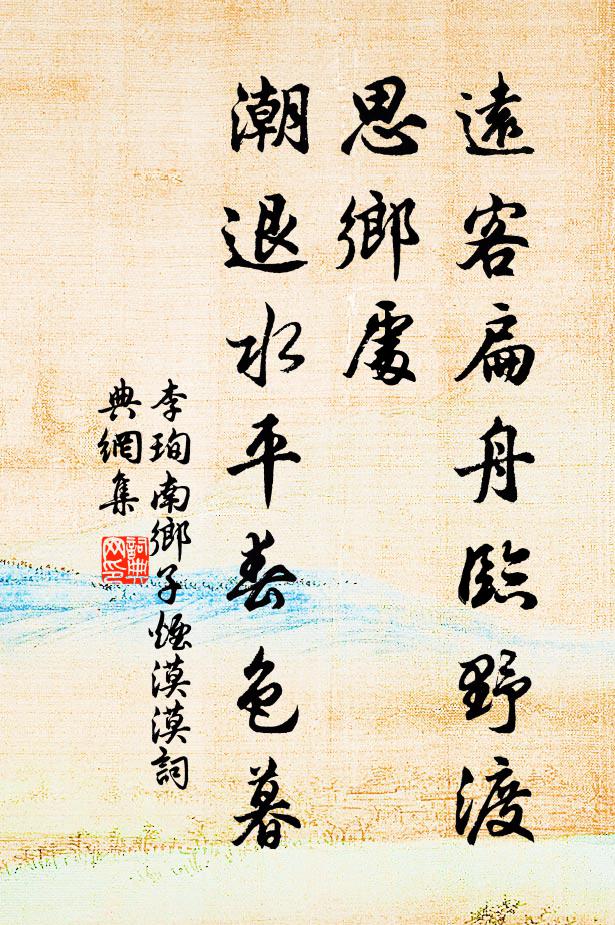 遠客扁舟臨野渡
思鄉處
潮退水平春色暮
李珣南鄉子煙漠漠詞
典網集
詞典
网印